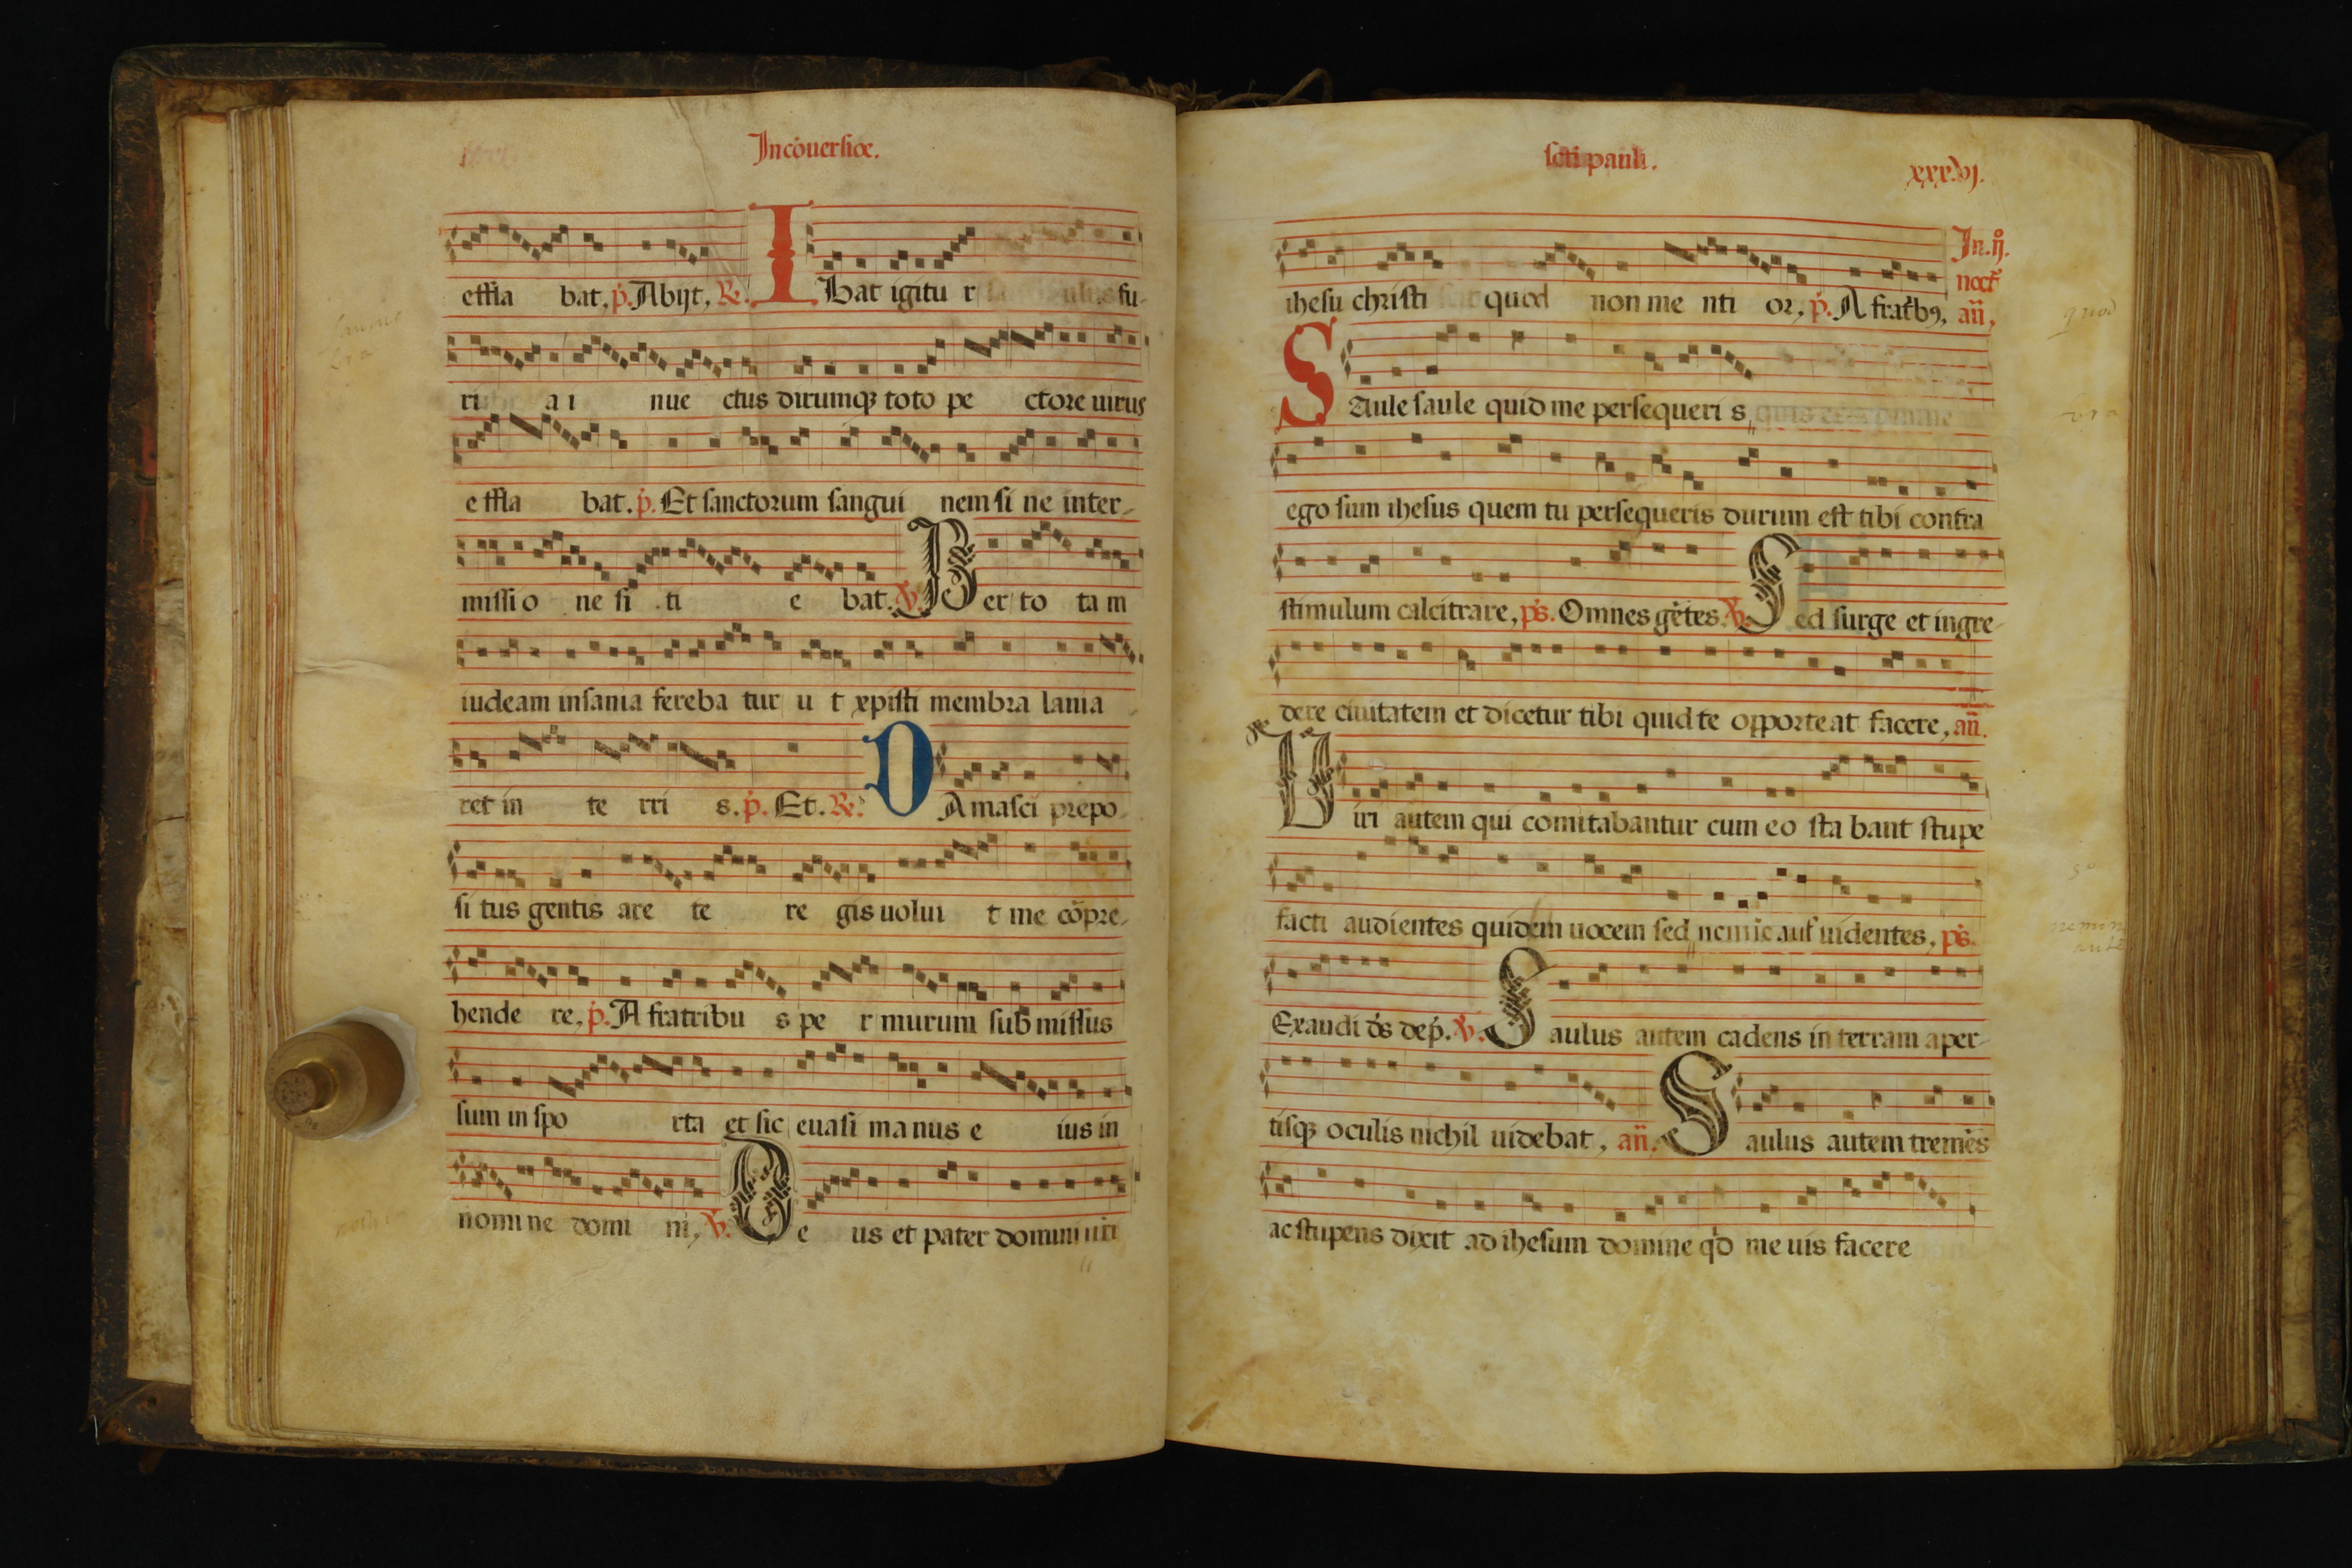 In cōuersiōe.
effla bat. p̄. Abijt, R̄.
I Bat igitu r fu-
ri a i nue ctus dirumqꝫ toto pe ctore uirus
e ffla bat. p̄. Et sanctorum sangui nem si ne inter-
missi o ne si ti e bat. V̄. Per to tam
iudeam insania fereba tur u t xpisti membra lania
ret in te rri s. p̄. Et. R̄.
D Amasci prepo-
si tus gentis are te re gis uolui t me cōpre-
hende re, p̄. A fratribu s pe r murum submissus
sum in spo rta et sic euasi manus e ius in
nomine domi ni, V̄. De us et pater domini nri
scti pauli.
xxxvj.
ihesu christi quod non me nti or, p̄. A frat'bꝫ, añ,
In. ij.
noct'
S Aule saule quid me persequeri s,
ego sum ihesus quem tu persequeris durum est tibi contra
stimulum calcitrare, ps̄. Omnes gētes. V̄. Sed surge et ingre-
dere ciuitatem et dicetur tibi quid te opporteat facere, añ.
Uiri autem qui comitabantur cum eo sta bant stupe
facti audientes quidem uocem sed uidentes, ps̄.
Exaudi ds̄ dep̄. V̄. Saulus autem cadens in terram aper-
tisqꝫ oculis nichil uidebat, añ. Saulus autem tremēs
ac stupens dixit ad ihesum domine qd̄ me uis facere